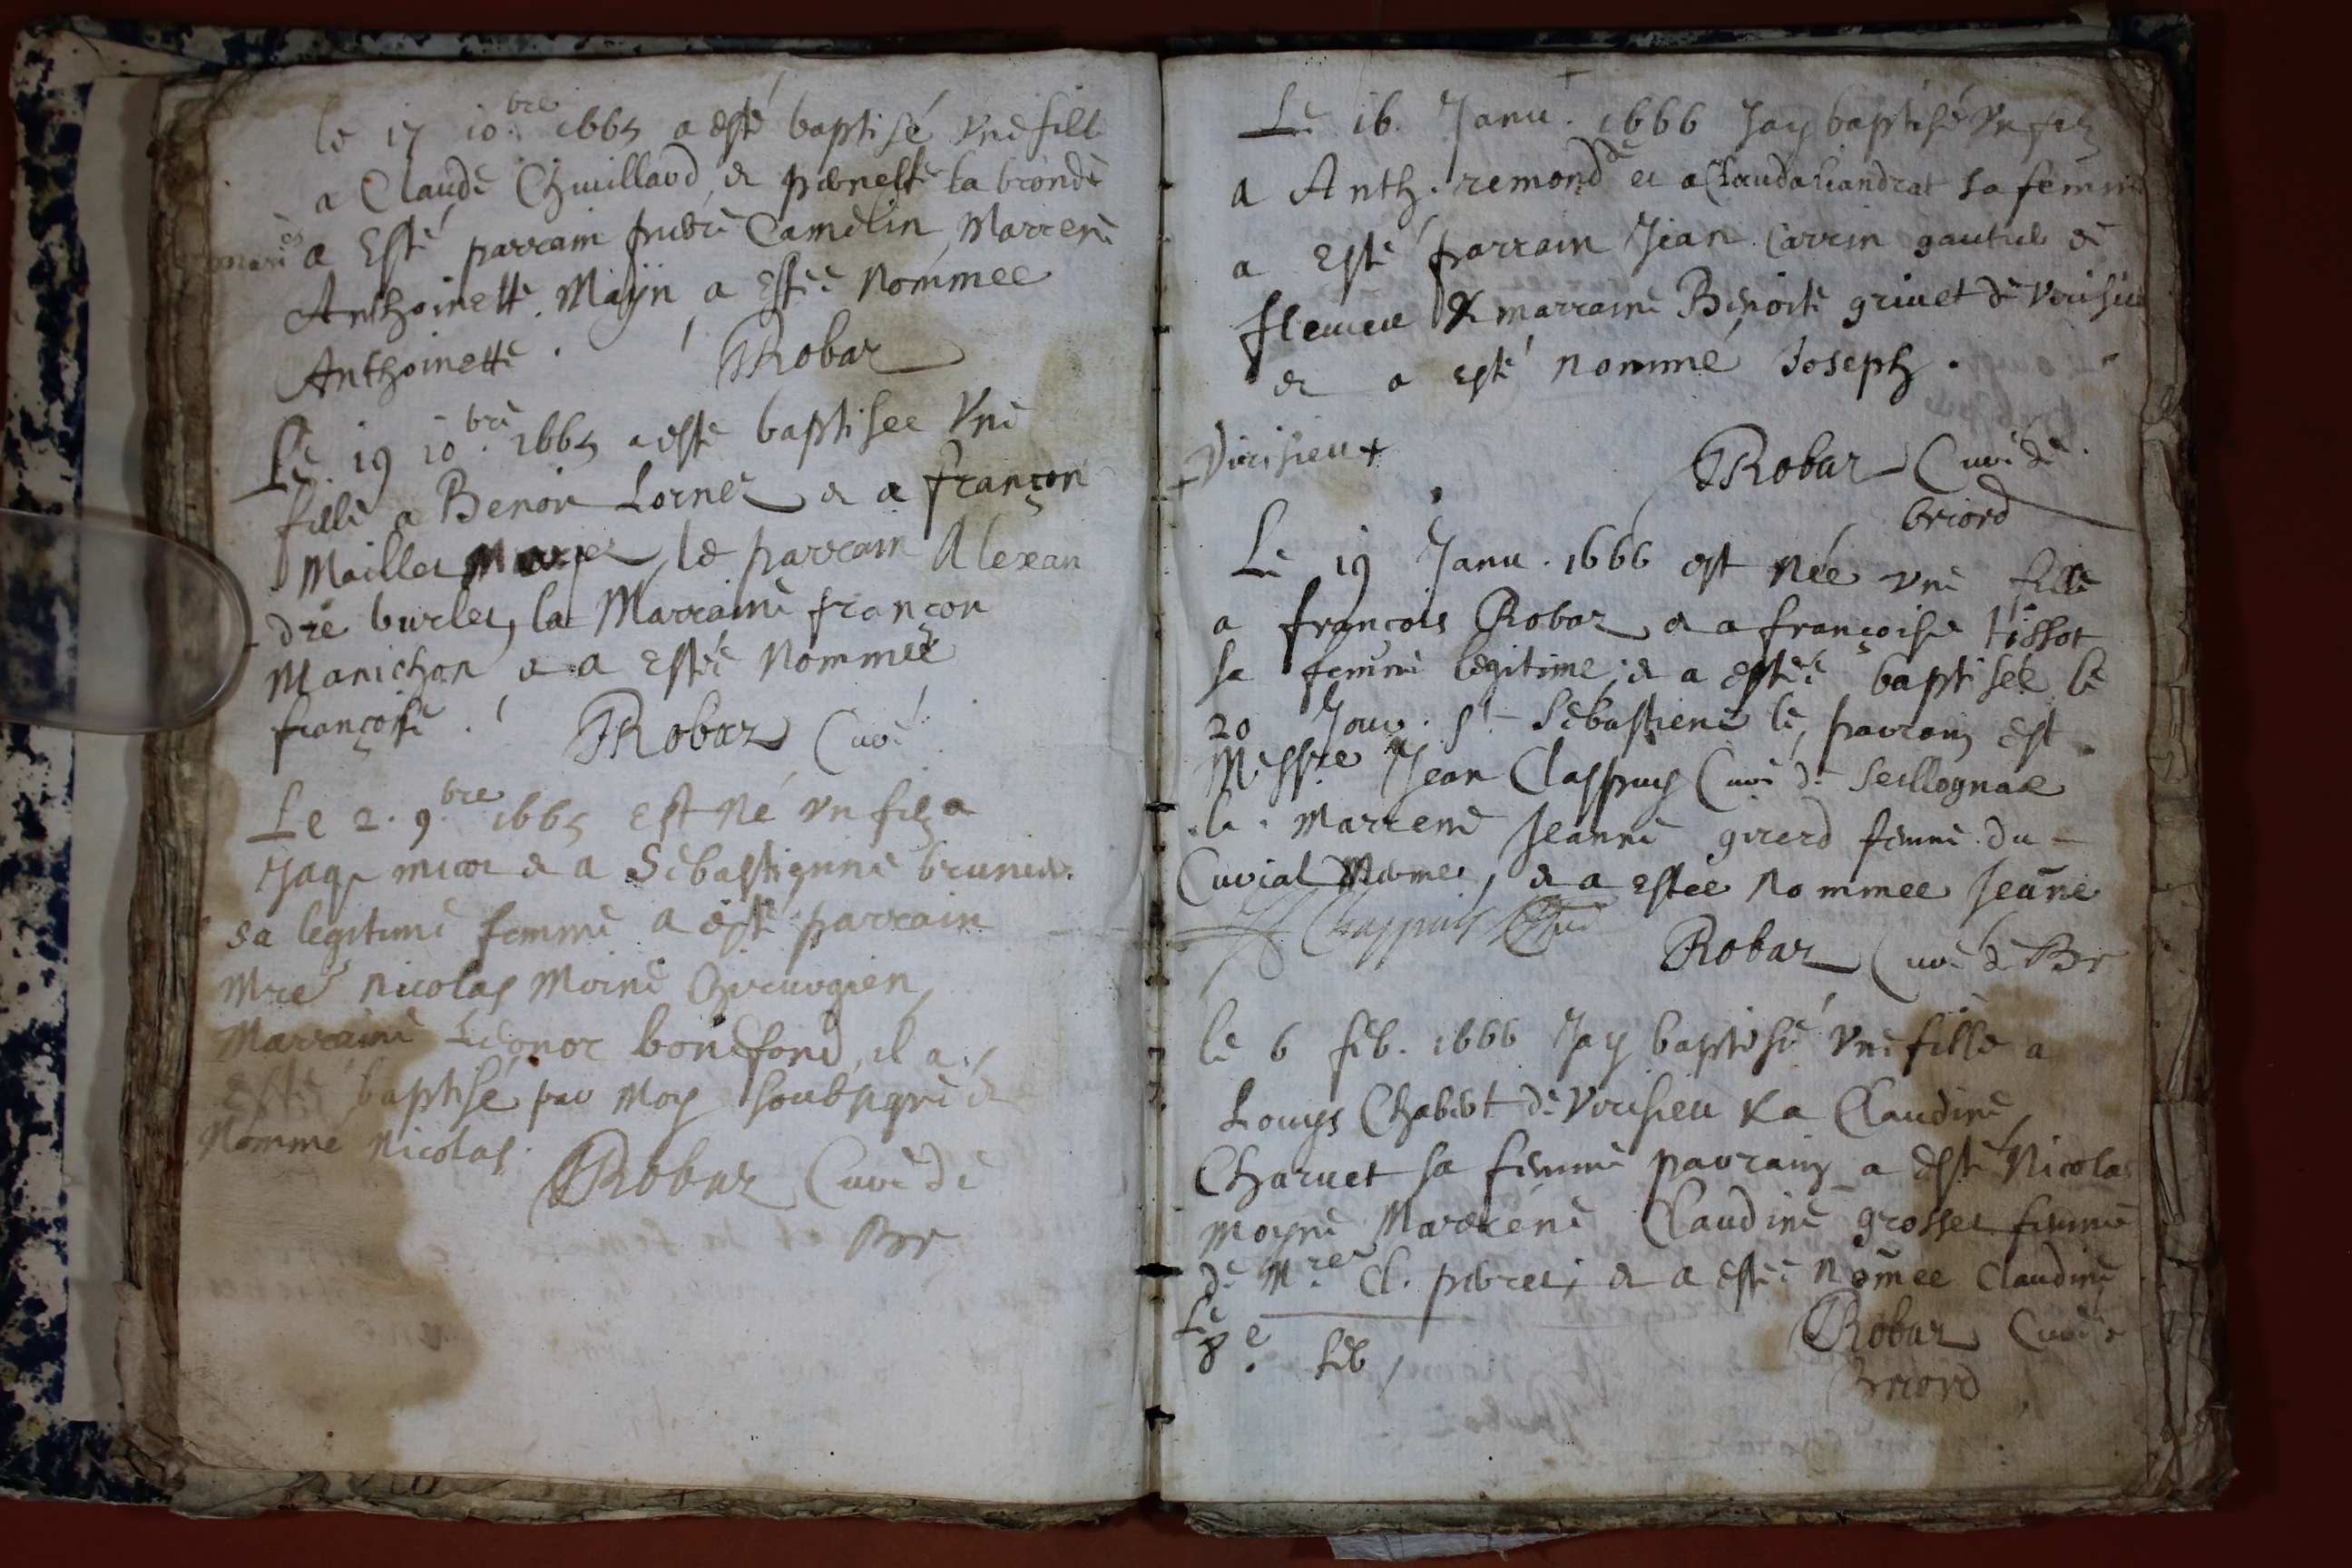 le 17 10.bre 1665 a esté baptisé Une fille
a Claude Chuillard & pernette la bronde
mariés a Esté parrain Camelin Marrene
Anthoinette Mayn a Estée Nommee
Anthoinette. Robar
Le 19 10.bre 1665 a esté baptisee Vne
fille a Benoit Lornet & a françon
Maillet le parrain Alexan
dre burlet, la Marraine françon
Manichon & a Estée Nommeé
françoise. Robar Curé
Le 2. 9.bre 1665 Est Né vn filz a
Jaq & a Sebastienne brunet
sa legitime femme a esté parrain
Mre Nicolas Moine Chirurgien,
Marraine Leonor bonefond, il a
esté baptisé par Moy soubsigné &
Nommé Nicolas. Robar Curé de
Br
Le 16. Janu. 1666 Jay baptisé Vn filz
a Anth. remond et a Clauda sa femme
a Esté parrain Jean Carrin de
& marraine Benoite griuet de Virisieu
& a esté nommé Joseph.
Virisieu + Robar Curé de
briord
Le 19 Janu. 1666 est Née vne fille
a francois Robar & a françoise tissot
sa femme legitime, & a estée baptisée le
20 Jour St Sebastiene le parrain est
Messre Jean Clappuy Curé de Seillognae
la Marrene Jeanne girerd femme du
Curial & a Estee Nommee Jeane
Chappuis
Robar Curé de Br
le 6 feb. 1666 Jay baptisé Vne fille a
Louys Chabert de Virisieu & a Claudine
Charuet sa femme parrain a Esté Nicolas
Moyne Marrene Claudine grosset femme
de Mre Cl. & a estée Nõmee Claudine
Robar Curé de
briord
Le 8e. feb,